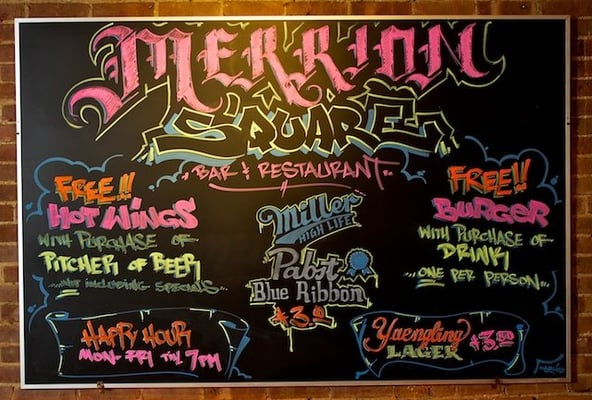 MERRION
SQUARE
BAR & RESTAURANT..
FREE!!
HOT WINGS
WITH PURCHASE OF
PITCHER OF BEER
...NOT INCLUDING SPECIALS...
Miller
HIGH LIFE
Pabst
Blue Ribbon
FREE!!
BURGER
WITH PURCHASE OF
DRINK
...ONE PER PERSON...
HAPPY HOUR
MON-FRI TIL 7PM
Yuengling
LAGER